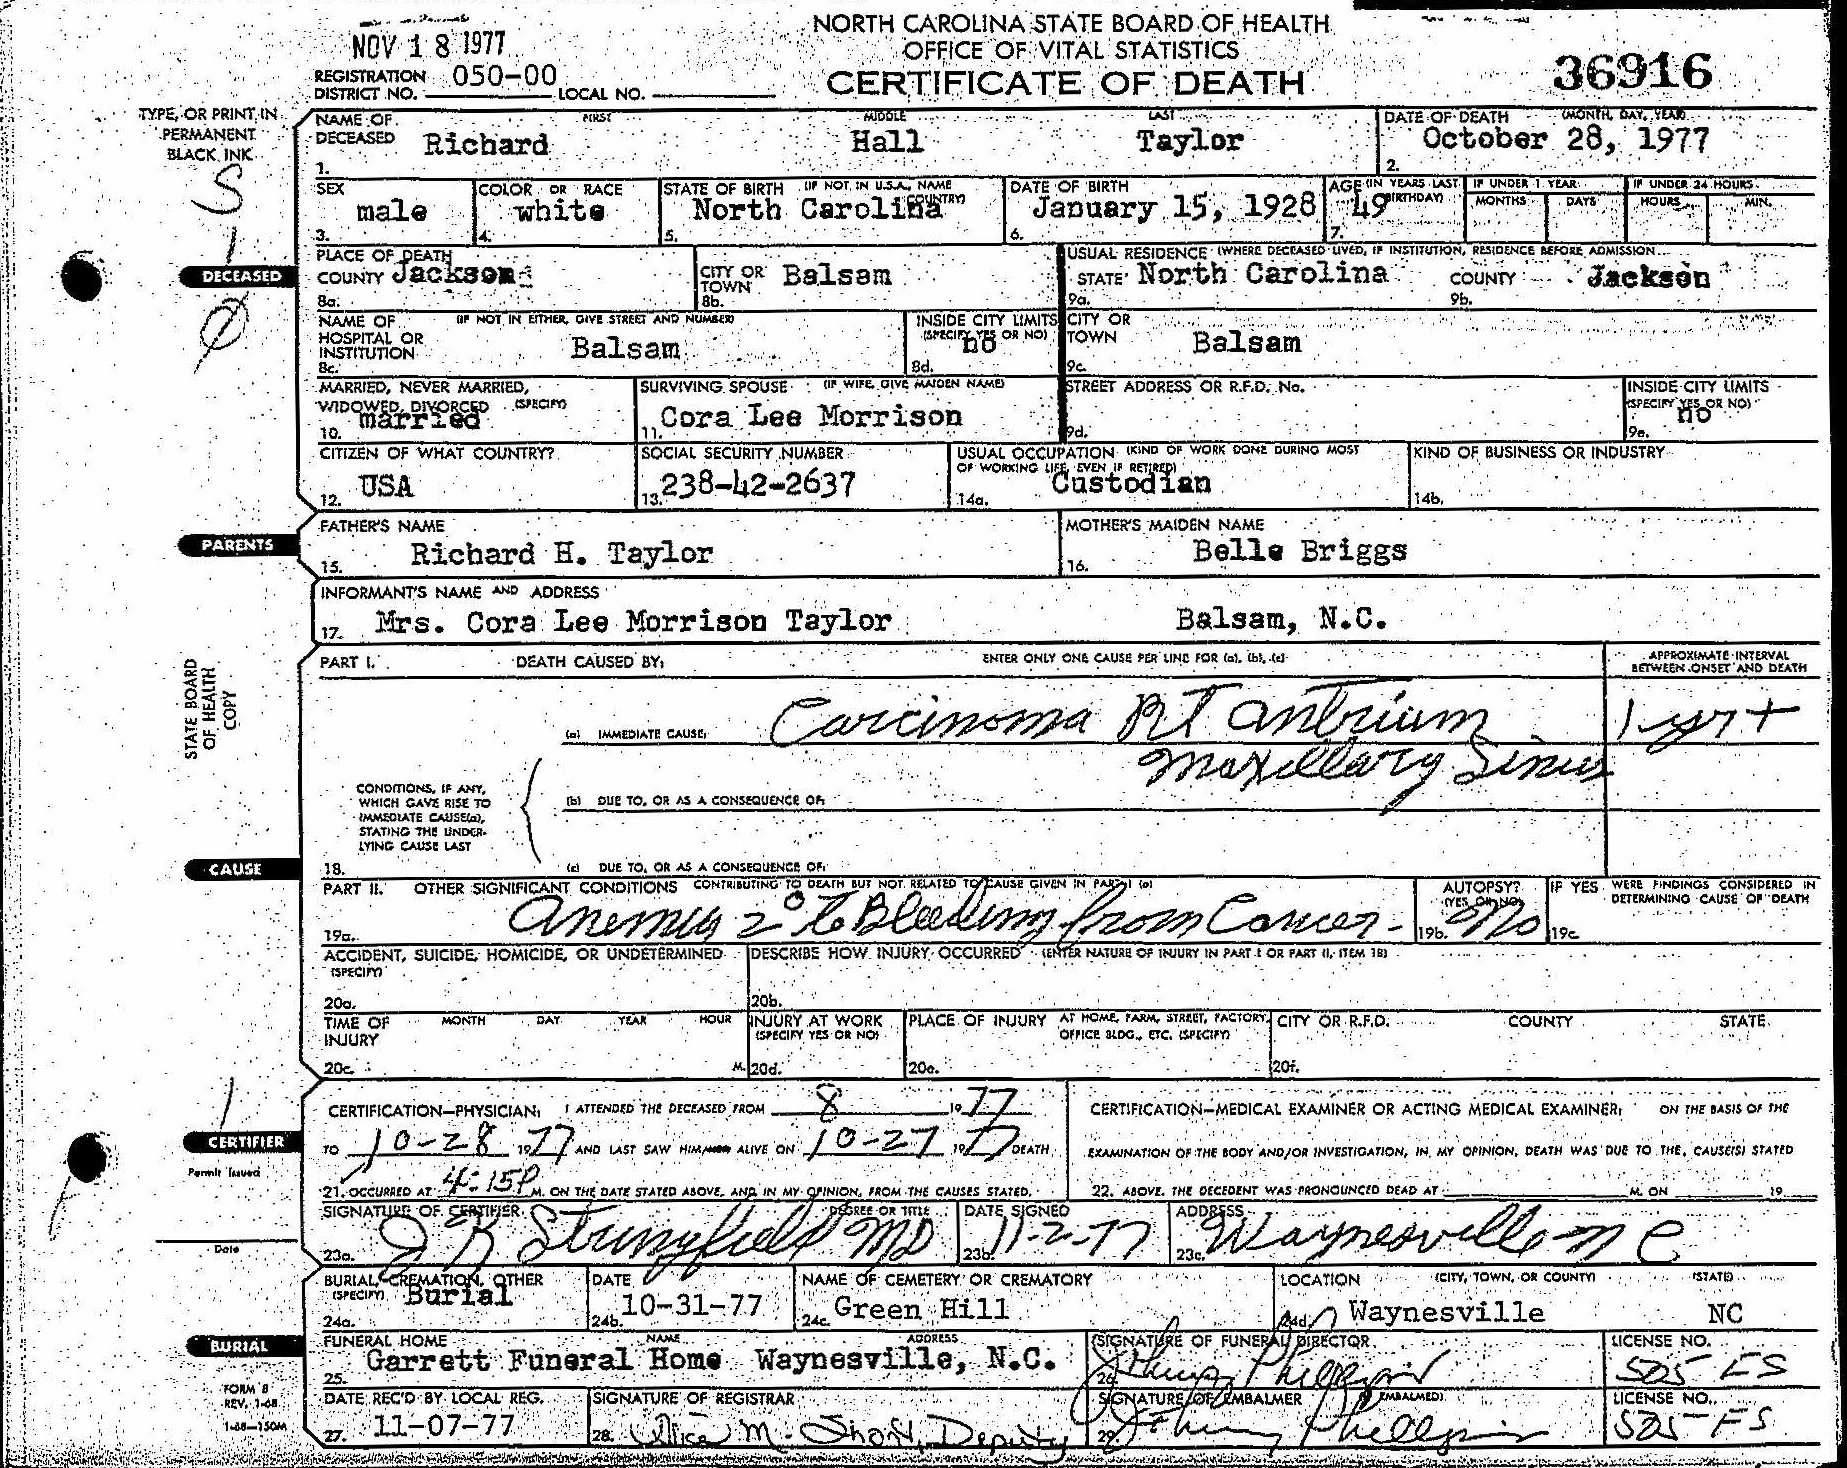 NORTH CAROLINA STATE BOARD OF HEALTH
OFFICE OF VITAL STATISTICS
CERTIFICATE OF DEATH
NOV 18 1977
36916
REGISTRATION DISTRICT NO. 050-00 LOCAL NO.
TYPE, OR PRINT IN
PERMANENT
BLACK INK
S
1
NAME OF DECEASED FIRST MIDDLE LAST
1. Richard Hall Taylor
DATE OF DEATH (MONTH, DAY, YEAR)
2. October 28, 1977
SEX
3. male
COLOR OR RACE
4. white
STATE OF BIRTH (IF NOT IN U.S.A., NAME COUNTRY)
5. North Carolina
DATE OF BIRTH
6. January 15, 1928
AGE (IN YEARS LAST BIRTHDAY)
7. 49
IF UNDER 1 YEAR MONTHS DAYS
IF UNDER 24 HOURS HOURS MIN.
DECEASED
PLACE OF DEATH
COUNTY Jackson
8a.
CITY OR TOWN Balsam
8b.
USUAL RESIDENCE (WHERE DECEASED LIVED, IF INSTITUTION, RESIDENCE BEFORE ADMISSION
STATE North Carolina COUNTY Jackson
9a. 9b.
NAME OF HOSPITAL OR INSTITUTION (IF NOT IN EITHER, GIVE STREET AND NUMBER)
8c. Balsam
INSIDE CITY LIMITS (SPECIFY YES OR NO)
8d. no
CITY OR TOWN Balsam
9c.
MARRIED, NEVER MARRIED, WIDOWED, DIVORCED (SPECIFY)
10. married
SURVIVING SPOUSE (IF WIFE, GIVE MAIDEN NAME)
11. Cora Lee Morrison
STREET ADDRESS OR R.F.D. No.
9d.
INSIDE CITY LIMITS (SPECIFY YES OR NO)
9e. no
CITIZEN OF WHAT COUNTRY?
12. USA
SOCIAL SECURITY NUMBER
13. 238-42-2637
USUAL OCCUPATION (KIND OF WORK DONE DURING MOST OF WORKING LIFE, EVEN IF RETIRED)
14a. Custodian
KIND OF BUSINESS OR INDUSTRY
14b.
PARENTS
FATHER'S NAME
15. Richard H. Taylor
MOTHER'S MAIDEN NAME
16. Belle Briggs
INFORMANT'S NAME AND ADDRESS
17. Mrs. Cora Lee Morrison Taylor Balsam, N.C.
STATE BOARD
OF HEALTH
COPY
PART I. DEATH CAUSED BY: ENTER ONLY ONE CAUSE PER LINE FOR (a), (b), (c)
APPROXIMATE INTERVAL BETWEEN ONSET AND DEATH
(a) IMMEDIATE CAUSE: Carcinoma RT antrium 1 yr +
Maxillary Sinus
CONDITIONS, IF ANY,
WHICH GAVE RISE TO
IMMEDIATE CAUSE(a),
STATING THE UNDER-
LYING CAUSE LAST
(b) DUE TO, OR AS A CONSEQUENCE OF:
CAUSE
18. (c) DUE TO, OR AS A CONSEQUENCE OF:
PART II. OTHER SIGNIFICANT CONDITIONS CONTRIBUTING TO DEATH BUT NOT RELATED TO CAUSE GIVEN IN PART I (a)
19a. Anemia 2° to Bleeding from Cancer -
AUTOPSY? (YES OR NO)
19b. No
IF YES WERE FINDINGS CONSIDERED IN DETERMINING CAUSE OF DEATH
19c.
ACCIDENT, SUICIDE, HOMICIDE, OR UNDETERMINED (SPECIFY)
20a.
DESCRIBE HOW INJURY OCCURRED (ENTER NATURE OF INJURY IN PART I OR PART II, ITEM 18)
20b.
TIME OF INJURY MONTH DAY YEAR HOUR
20c. M.
INJURY AT WORK (SPECIFY YES OR NO)
20d.
PLACE OF INJURY AT HOME, FARM, STREET, FACTORY, OFFICE BLDG., ETC. (SPECIFY)
20e.
CITY OR R.F.D. COUNTY STATE
20f.
1
CERTIFIER
Permit Issued
Date
CERTIFICATION—PHYSICIAN: I ATTENDED THE DECEASED FROM 8 1977
TO 10-28 1977 AND LAST SAW HIM/HER ALIVE ON 10-27 1977 DEATH
21. OCCURRED AT 4:15P M. ON THE DATE STATED ABOVE, AND IN MY OPINION, FROM THE CAUSES STATED.
CERTIFICATION—MEDICAL EXAMINER OR ACTING MEDICAL EXAMINER: ON THE BASIS OF THE
EXAMINATION OF THE BODY AND/OR INVESTIGATION, IN MY OPINION, DEATH WAS DUE TO THE CAUSE(S) STATED
22. ABOVE. THE DECEDENT WAS PRONOUNCED DEAD AT M. ON 19
SIGNATURE OF CERTIFIER DEGREE OR TITLE
23a. J R Stringfield MD
DATE SIGNED
23b. 11-2-77
ADDRESS
23c. Waynesville N C
BURIAL, CREMATION, OTHER (SPECIFY)
24a. Burial
DATE
24b. 10-31-77
NAME OF CEMETERY OR CREMATORY
24c. Green Hill
LOCATION (CITY, TOWN, OR COUNTY) (STATE)
24d. Waynesville NC
BURIAL
FUNERAL HOME NAME ADDRESS
25. Garrett Funeral Home Waynesville, N.C.
SIGNATURE OF FUNERAL DIRECTOR
26.
LICENSE NO.
525 FS
FORM 8
REV. 1-68
1-68-150M
DATE REC'D BY LOCAL REG.
27. 11-07-77
SIGNATURE OF REGISTRAR
28. M. Short, Deputy
SIGNATURE OF EMBALMER (IF EMBALMED)
29.
LICENSE NO.
525 FS